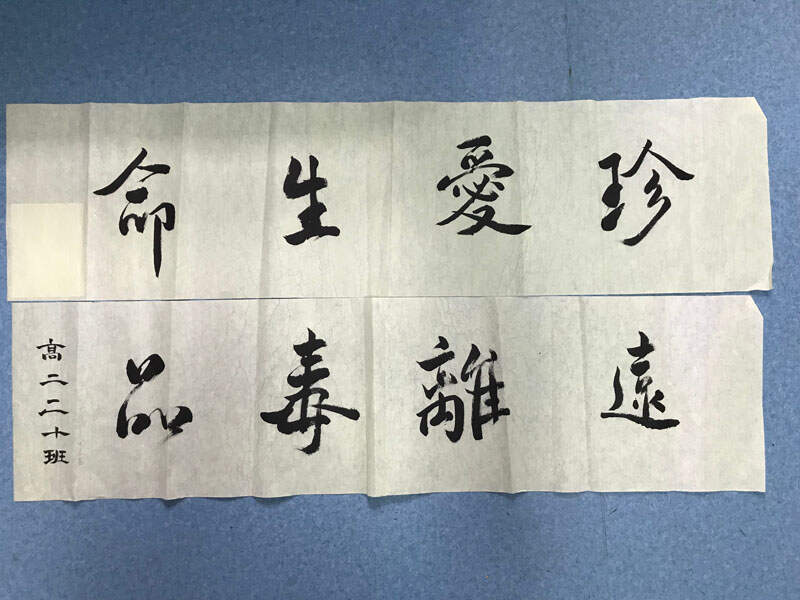 珍愛生命
遠離毒品
高二二十班